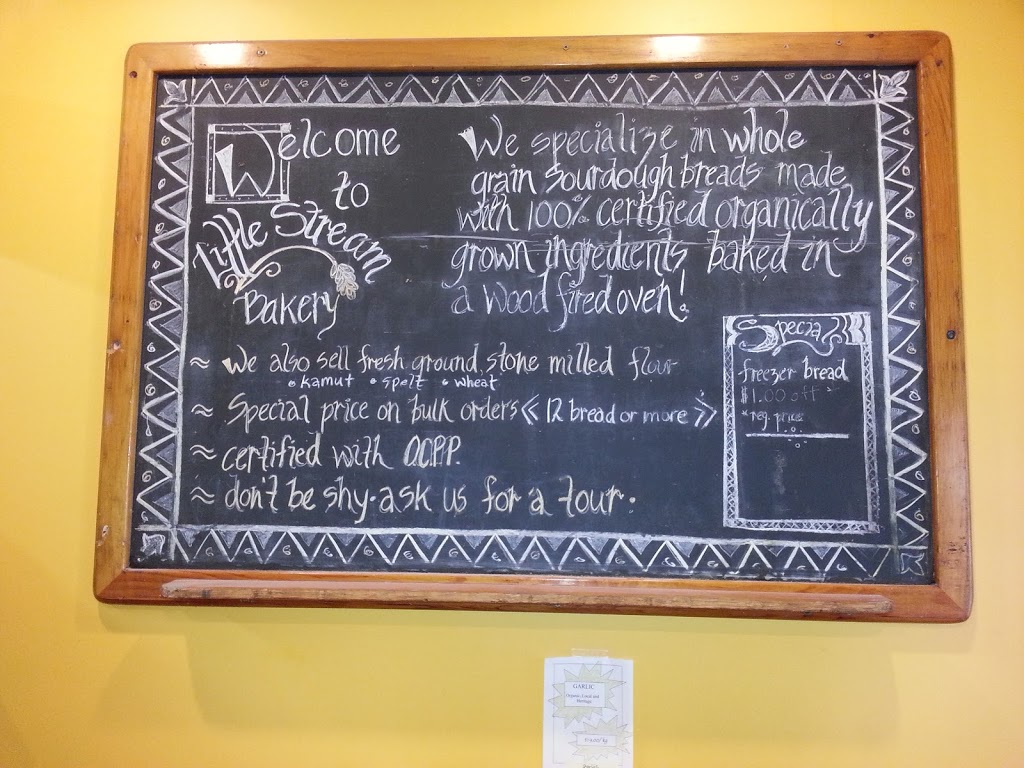 Welcome
to
Little Stream
Bakery
We specialize in whole
grain sourdough breads made
with 100% certified organically
grown ingredients baked in
a wood fired oven!
≈ We also sell fresh ground, stone milled flour
• kamut • spelt • wheat
≈ Special price on bulk orders << 12 bread or more >>
≈ certified with O.C.P.P.
≈ don't be shy · ask us for a tour.
Specials
freezer bread
$1.00 off
*reg. price
GARLIC
Organic, Local and